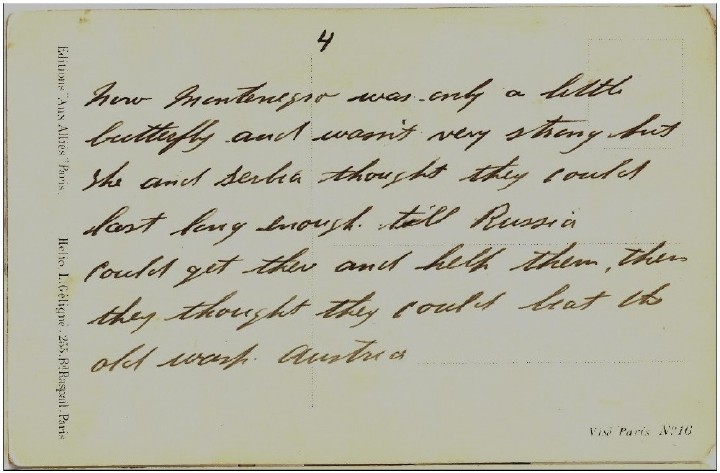 4
Now Montenegro was only a little
butterfly and wasn't very strong but
she and Serbia thought they could
last long enough till Russia
could get ther and help them, then
they thought they could beat the
old wasp. Austria
Editions "Aux Alliés" Paris.
Hélio. L. Géligné. 255, Bd Raspail. Paris
Visé Paris Nº 16